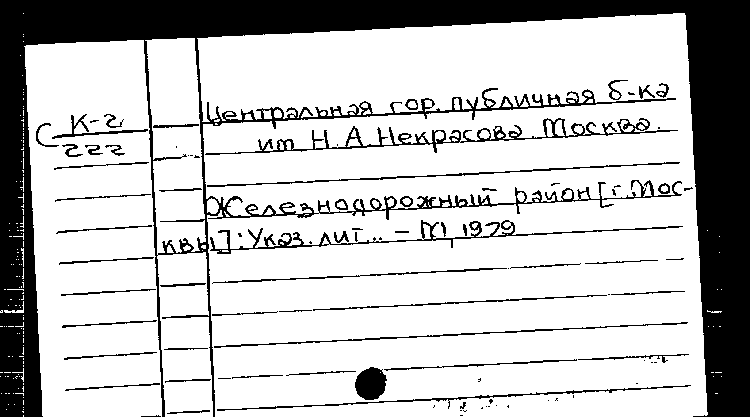 Центральная гор. публичная б-ка
С К-2
222
им Н.А. Некрасова. Москва.
Железнодорожный район [г. Мос-
квы]: Указ. лит.. – М, 1979